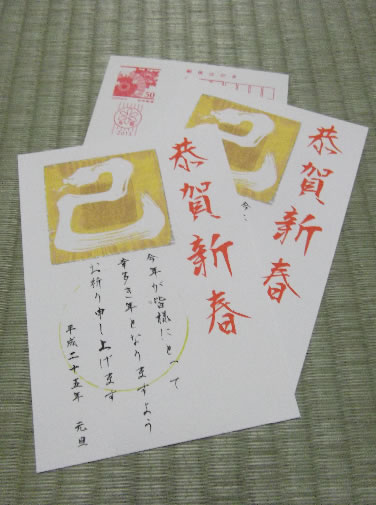 恭賀新春
己
今年が皆様にとって
幸多き年となりますよう
お祈り申し上げます
平成二十五年 元旦
恭賀新春
己
今
50